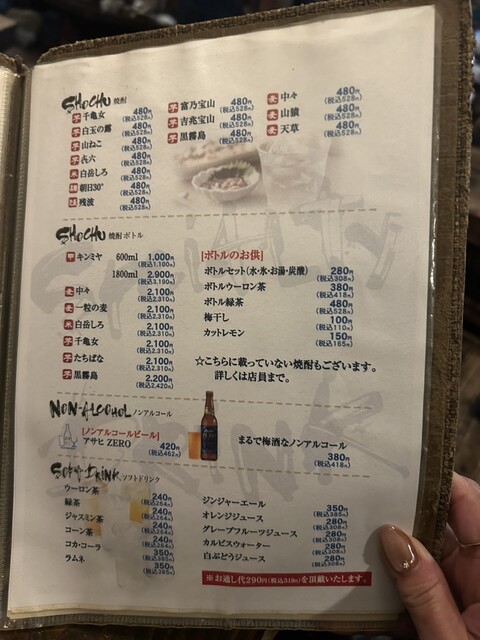 SHOCHU 焼酎
芋 千亀女 480円 (税込528円)
芋 白玉の露 480円 (税込528円)
芋 山ねこ 480円 (税込528円)
芋 㐂六 480円 (税込528円)
米 白岳しろ 480円 (税込528円)
朝日30° 480円 (税込528円)
残波 480円 (税込528円)
芋 富乃宝山 480円 (税込528円)
芋 吉兆宝山 480円 (税込528円)
芋 黒霧島 480円 (税込528円)
麦 中々 480円 (税込528円)
麦 山猿 480円 (税込528円)
麦 天草 480円 (税込528円)
SHOCHU 焼酎ボトル
甲 キンミヤ 600ml 1,000円 (税込1,100円)
1800ml 2,900円 (税込3,190円)
麦 中々 2,100円 (税込2,310円)
麦 一粒の麦 2,100円 (税込2,310円)
米 白岳しろ 2,100円 (税込2,310円)
芋 千亀女 2,100円 (税込2,310円)
芋 たちばな 2,100円 (税込2,310円)
芋 黒霧島 2,200円 (税込2,420円)
[ボトルのお供]
ボトルセット(水・氷・お湯・炭酸) 280円 (税込308円)
ボトルウーロン茶 380円 (税込418円)
ボトル緑茶 480円 (税込528円)
梅干し 100円 (税込110円)
カットレモン 150円 (税込165円)
☆こちらに載っていない焼酎もございます。
詳しくは店員まで。
NON-ALCOHOL ノンアルコール
[ノンアルコールビール]
アサヒ ZERO 420円 (税込462円)
まるで梅酒なノンアルコール
380円 (税込418円)
SOFT DRINK ソフトドリンク
ウーロン茶 240円 (税込264円)
緑茶 240円 (税込264円)
ジャスミン茶 240円 (税込264円)
コーン茶 240円 (税込264円)
コカ・コーラ 350円 (税込385円)
ラムネ 350円 (税込385円)
ジンジャーエール 350円 (税込385円)
オレンジジュース 280円 (税込308円)
グレープフルーツジュース 280円 (税込308円)
カルピスウォーター 280円 (税込308円)
白ぶどうジュース 280円 (税込308円)
※お通し代290円(税込319円)を頂戴いたします。